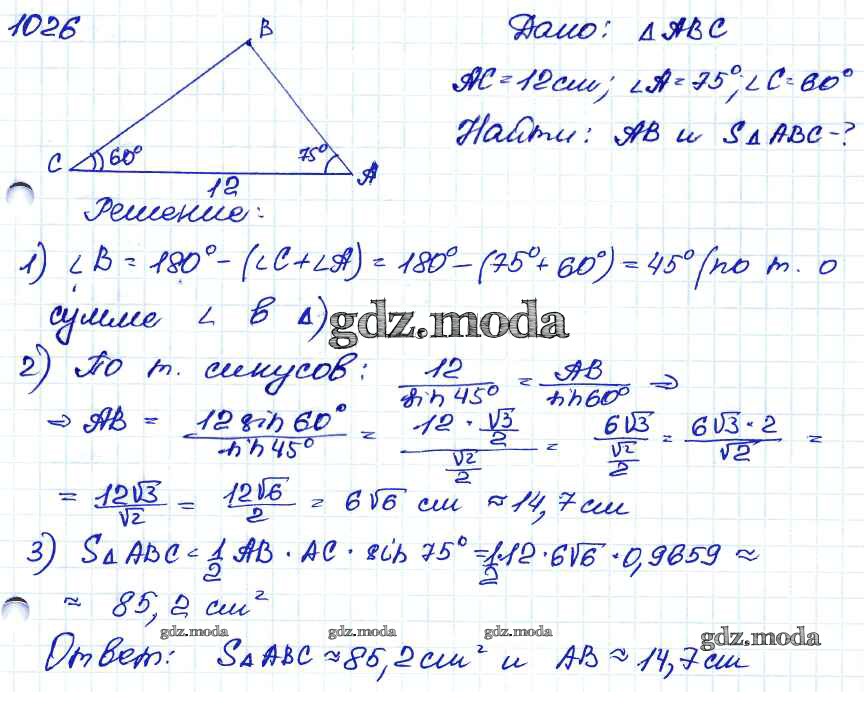 1026
B
Дано: △ABC
AC=12см; ∠A=75°; ∠C=60°
Найти: AB и S△ABC-?
C 60° 75° A
12
Решение:
1) ∠B = 180° - (∠C+∠A) = 180° - (75°+60°) = 45° (по т. о
сумме ∠ в △)
gdz.moda
2) По т. синусов: 12/sin45° = AB/sin60° ⇒
⇒ AB = 12 sin60°/sin45° = (12 · √3/2)/(√2/2) = 6√3/(√2/2) = 6√3·2/√2 =
= 12√3/√2 = 12√6/2 = 6√6 см ≈ 14,7см
3) S△ABC = 1/2 AB · AC · sin 75° = 1/2 12 · 6√6 · 0,9659 ≈
≈ 85,2 см²
gdz.moda gdz.moda gdz.moda gdz.moda
Ответ: S△ABC ≈ 85,2см² и AB ≈ 14,7см